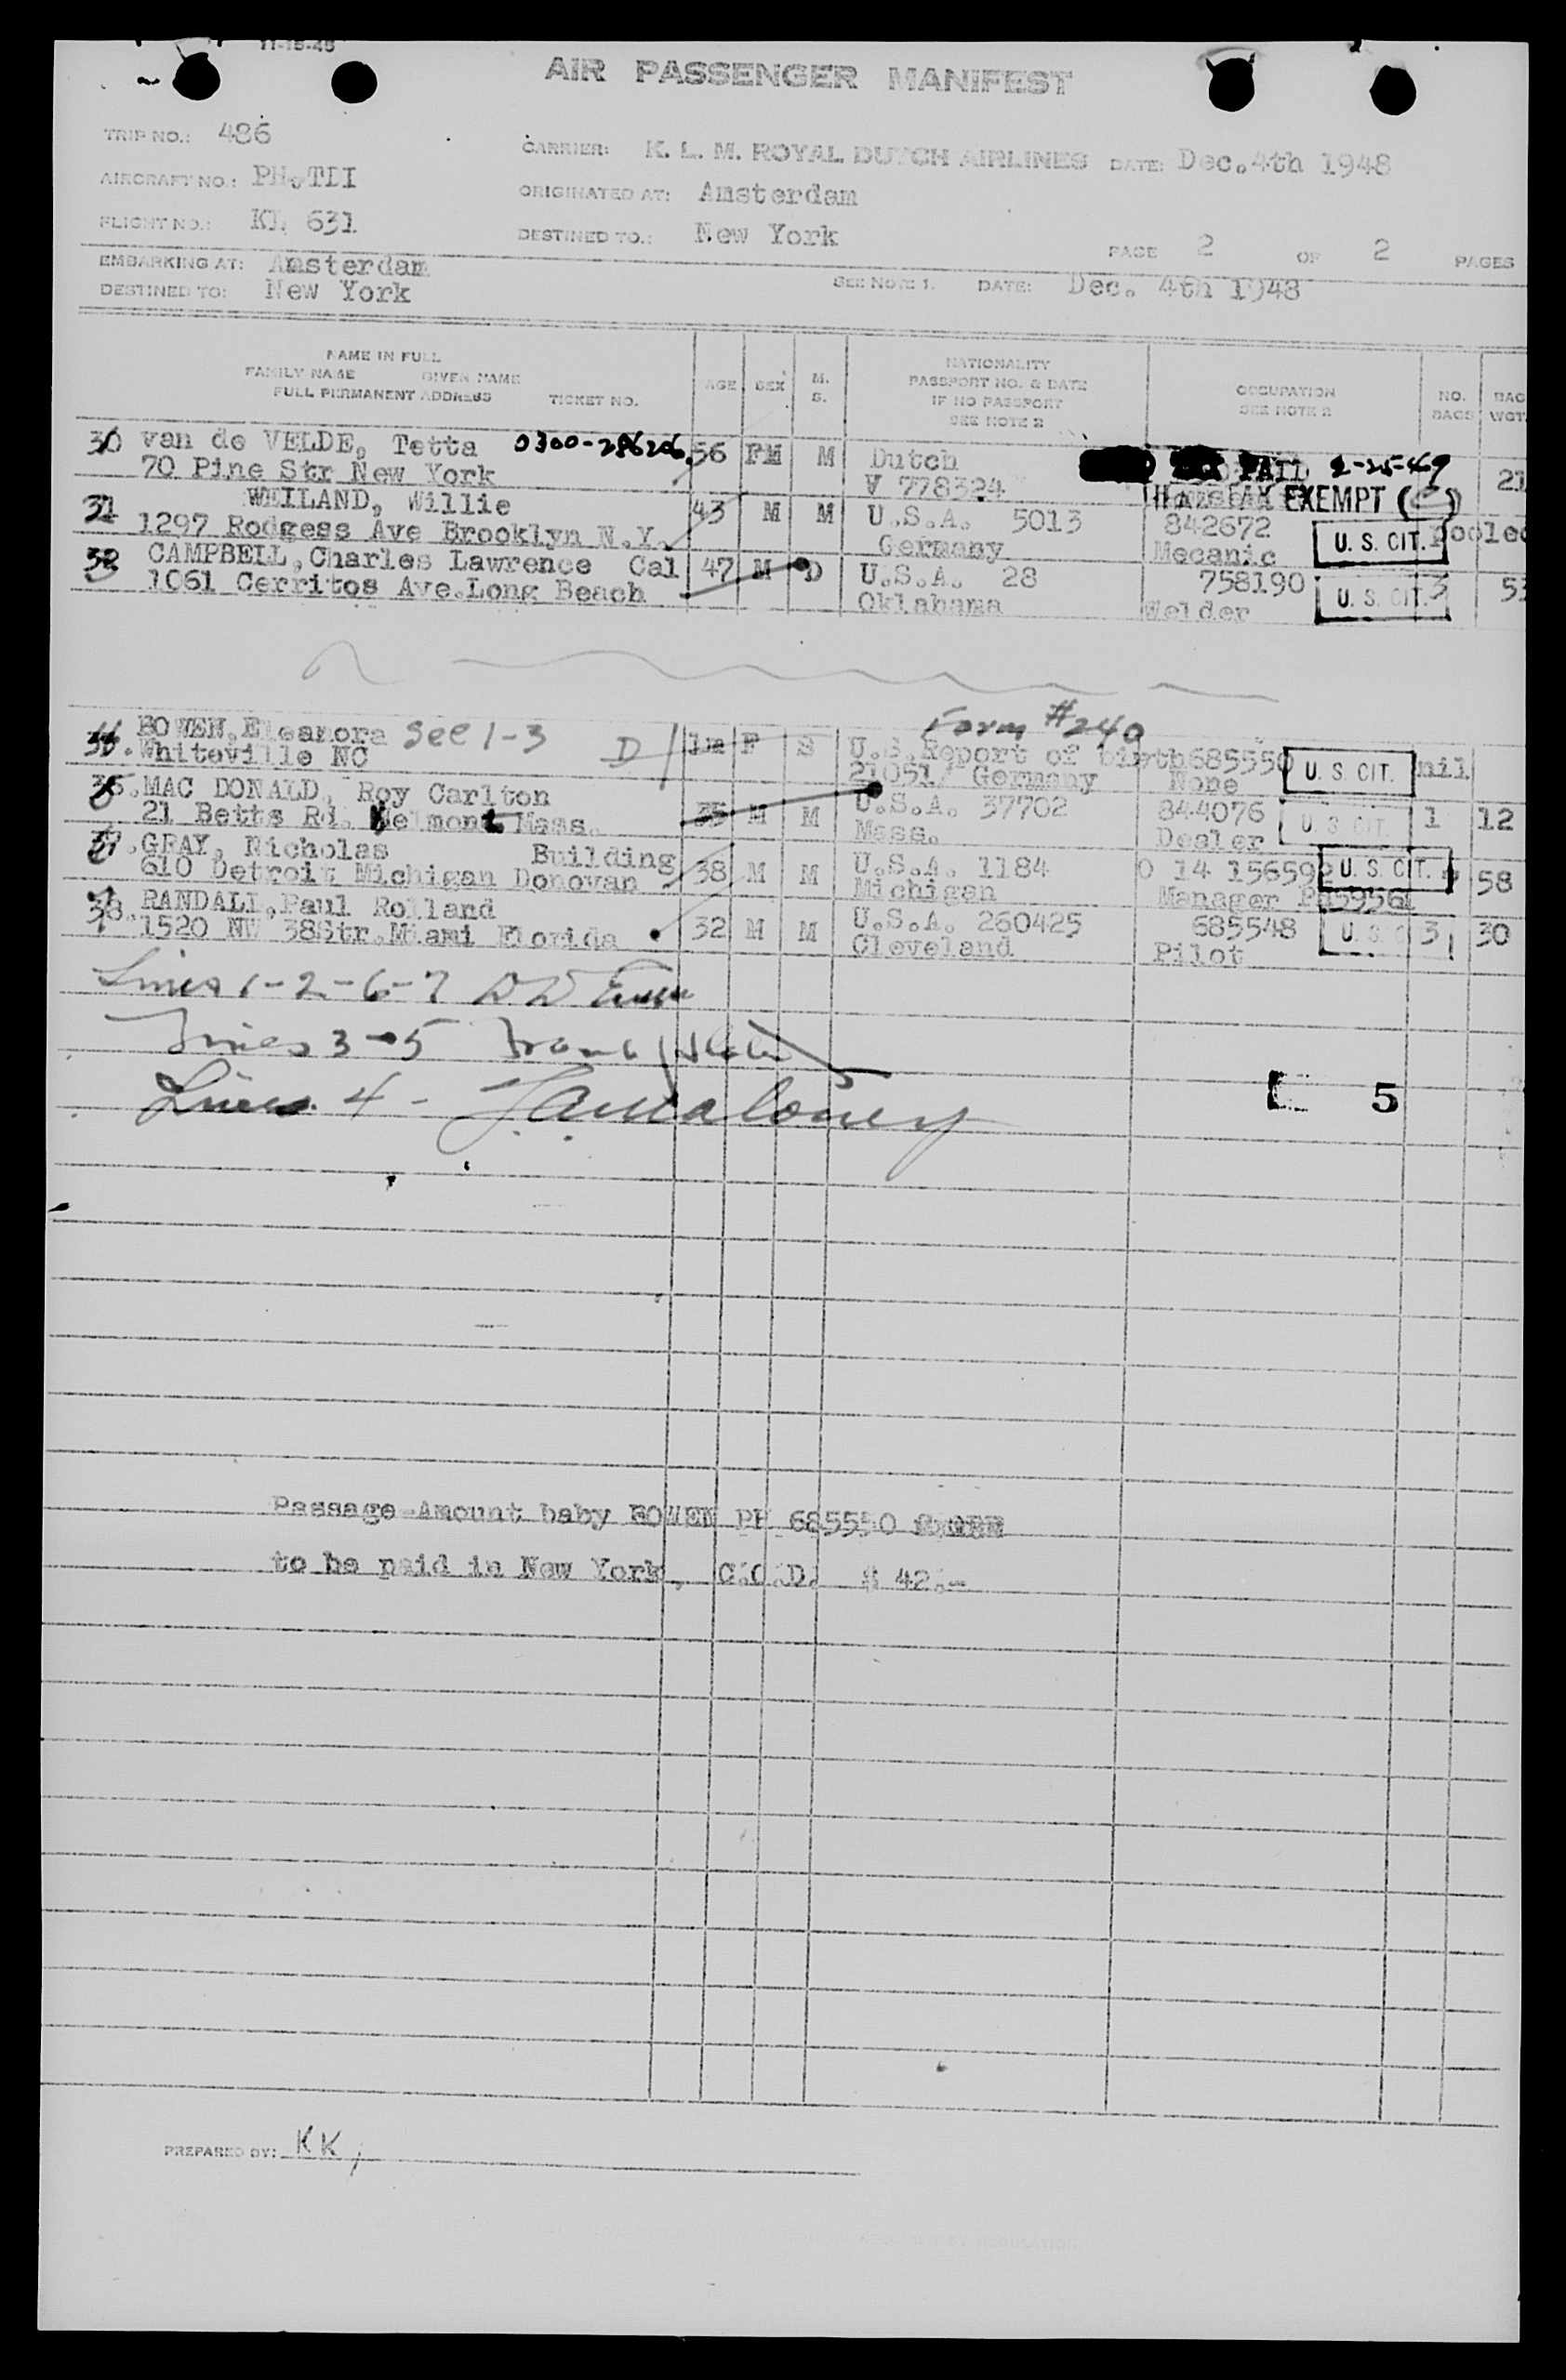 11-15-48
AIR PASSENGER MANIFEST
TRIP NO.: 486
CARRIER: K. L. M. ROYAL DUTCH AIRLINES DATE: Dec. 4th 1948
AIRCRAFT NO.: PH-TDI
ORIGINATED AT: Amsterdam
FLIGHT NO.: KL 631
DESTINED TO.: New York
PAGE 2 OF 2 PAGES
EMBARKING AT: Amsterdam
DESTINED TO: New York
SEE NOTE 1. DATE: Dec. 4th 1948
NAME IN FULL
FAMILY NAME GIVEN NAME
FULL PERMANENT ADDRESS TICKET NO.
AGE SEX M. S.
NATIONALITY
PASSPORT NO. & DATE
IF NO PASSPORT
SEE NOTE 2
OCCUPATION
SEE NOTE 2
NO. BAGS
BAG WGT.
30 van de VELDE, Tetta 0300-286206 56 FM M Dutch PAID 2-25-49
70 Pine Str New York V 778324 21
HEAD TAX EXEMPT (C)
31 WEILAND, Willie 43 M M U.S.A. 5013 842672 U. S. CIT. pooled
1297 Rodgess Ave Brooklyn N.Y. Germany Mecanic
CAMPBELL, Charles Lawrence Cal 47 M D U.S.A. 28 758190 U. S. CIT. 3 53
1061 Cerritos Ave.Long Beach Oklahama Welder
Form #240
BOWEN, Eleanora See 1-3 D 1m F S U.S. Report of birth 685550 U. S. CIT. nil
Whiteville NC 21051/ Germany None
MAC DONALD, Roy Carlton 35 M M U.S.A. 37702 844076 U. S. CIT. 1 12
21 Betths Rd. Belmont Mass. Mass. Dealer
GRAY, Nicholas Building 38 M M U.S.A. 1184 O 14 156592 U. S. CIT. 58
610 Detroit Michigan Donovan Michigan Manager PH59561
38. RANDALL, Paul Rolland 32 M M U.S.A. 260425 685548 U. S. C 3 30
1520 NW 38Str.Miami Florida Cleveland Pilot
Lines 1-2-6-7
Lines 3-5 Frank
Lines 4 - J A Maloney
5
Passage-Amount baby BOWEN PH 685550
to be paid in New York, C.O.D. $ 42.-
PREPARED BY: KK